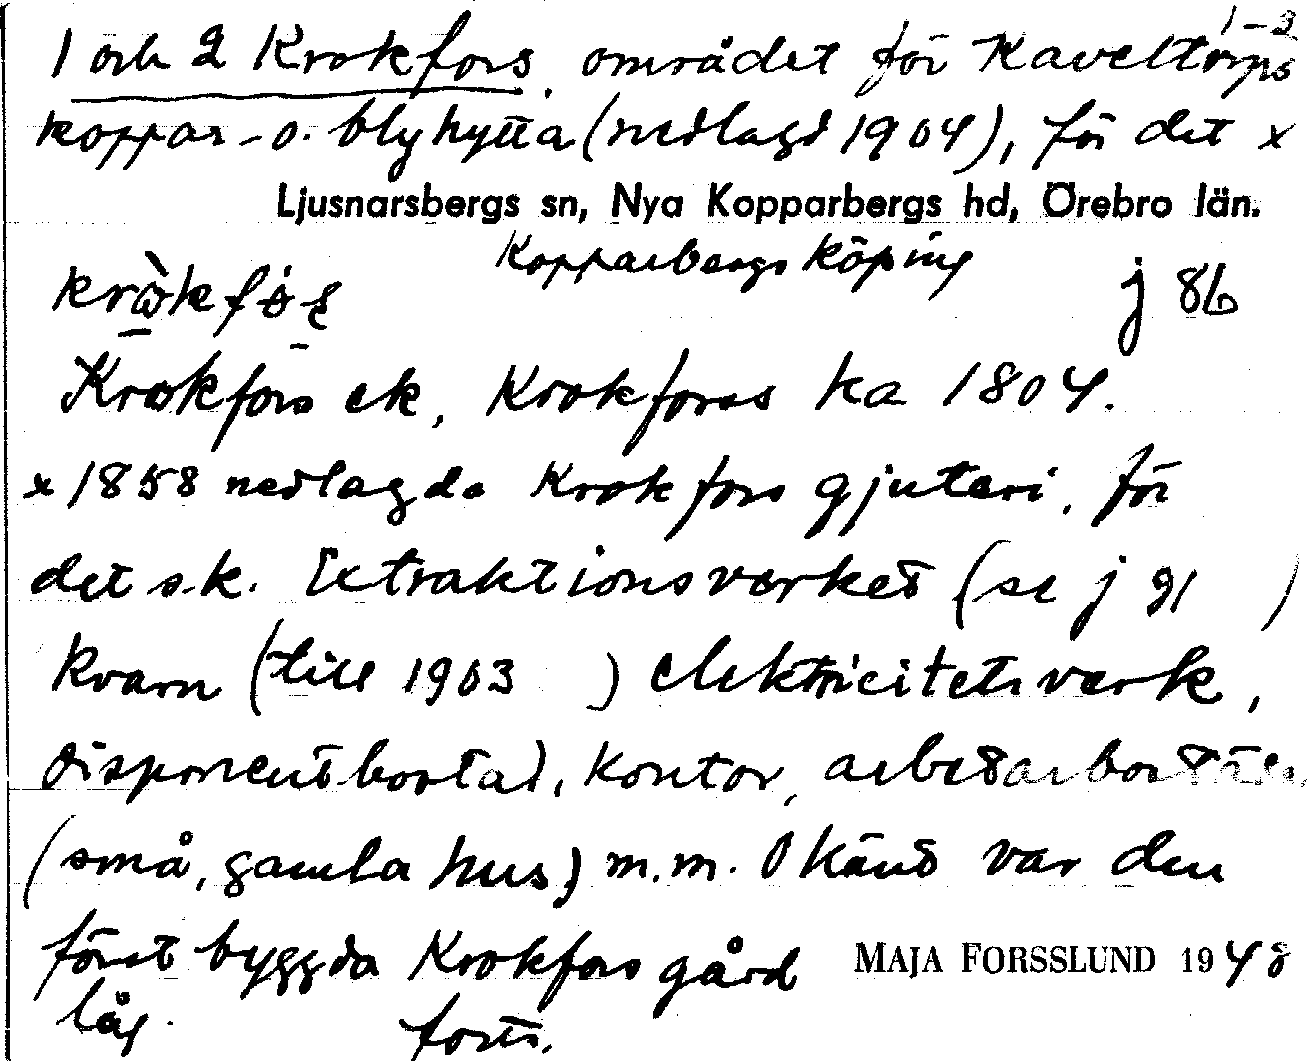 1-2
1 och 2 Krokfors, området för Kaveltorps
koppar- o. blyhytta (nedlagd 1904), för det x
Ljusnarsbergs sn, Nya Kopparbergs hd, Örebro län.
Kopparbergs köping
j 86
Krokfors ek, Krokforss ka 1804.
x 1858 nedlagda Krokfors gjuteri, för
det s.k. Extraktionsverket (se j 91 )
kvarn (till 1903 ) elektricitetsverk,
disponentbostad, kontor, arbetarbostäder
(små, gamla hus) m.m. Okänd var den
först byggda Krokfors gård
låg.
forts.
MAJA FORSSLUND 1948